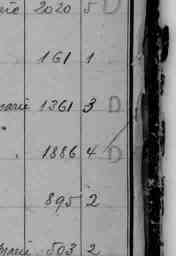 2020 5 D
161 1
marie 1361 3 D
1886 4 D
895 2
maria 503 2